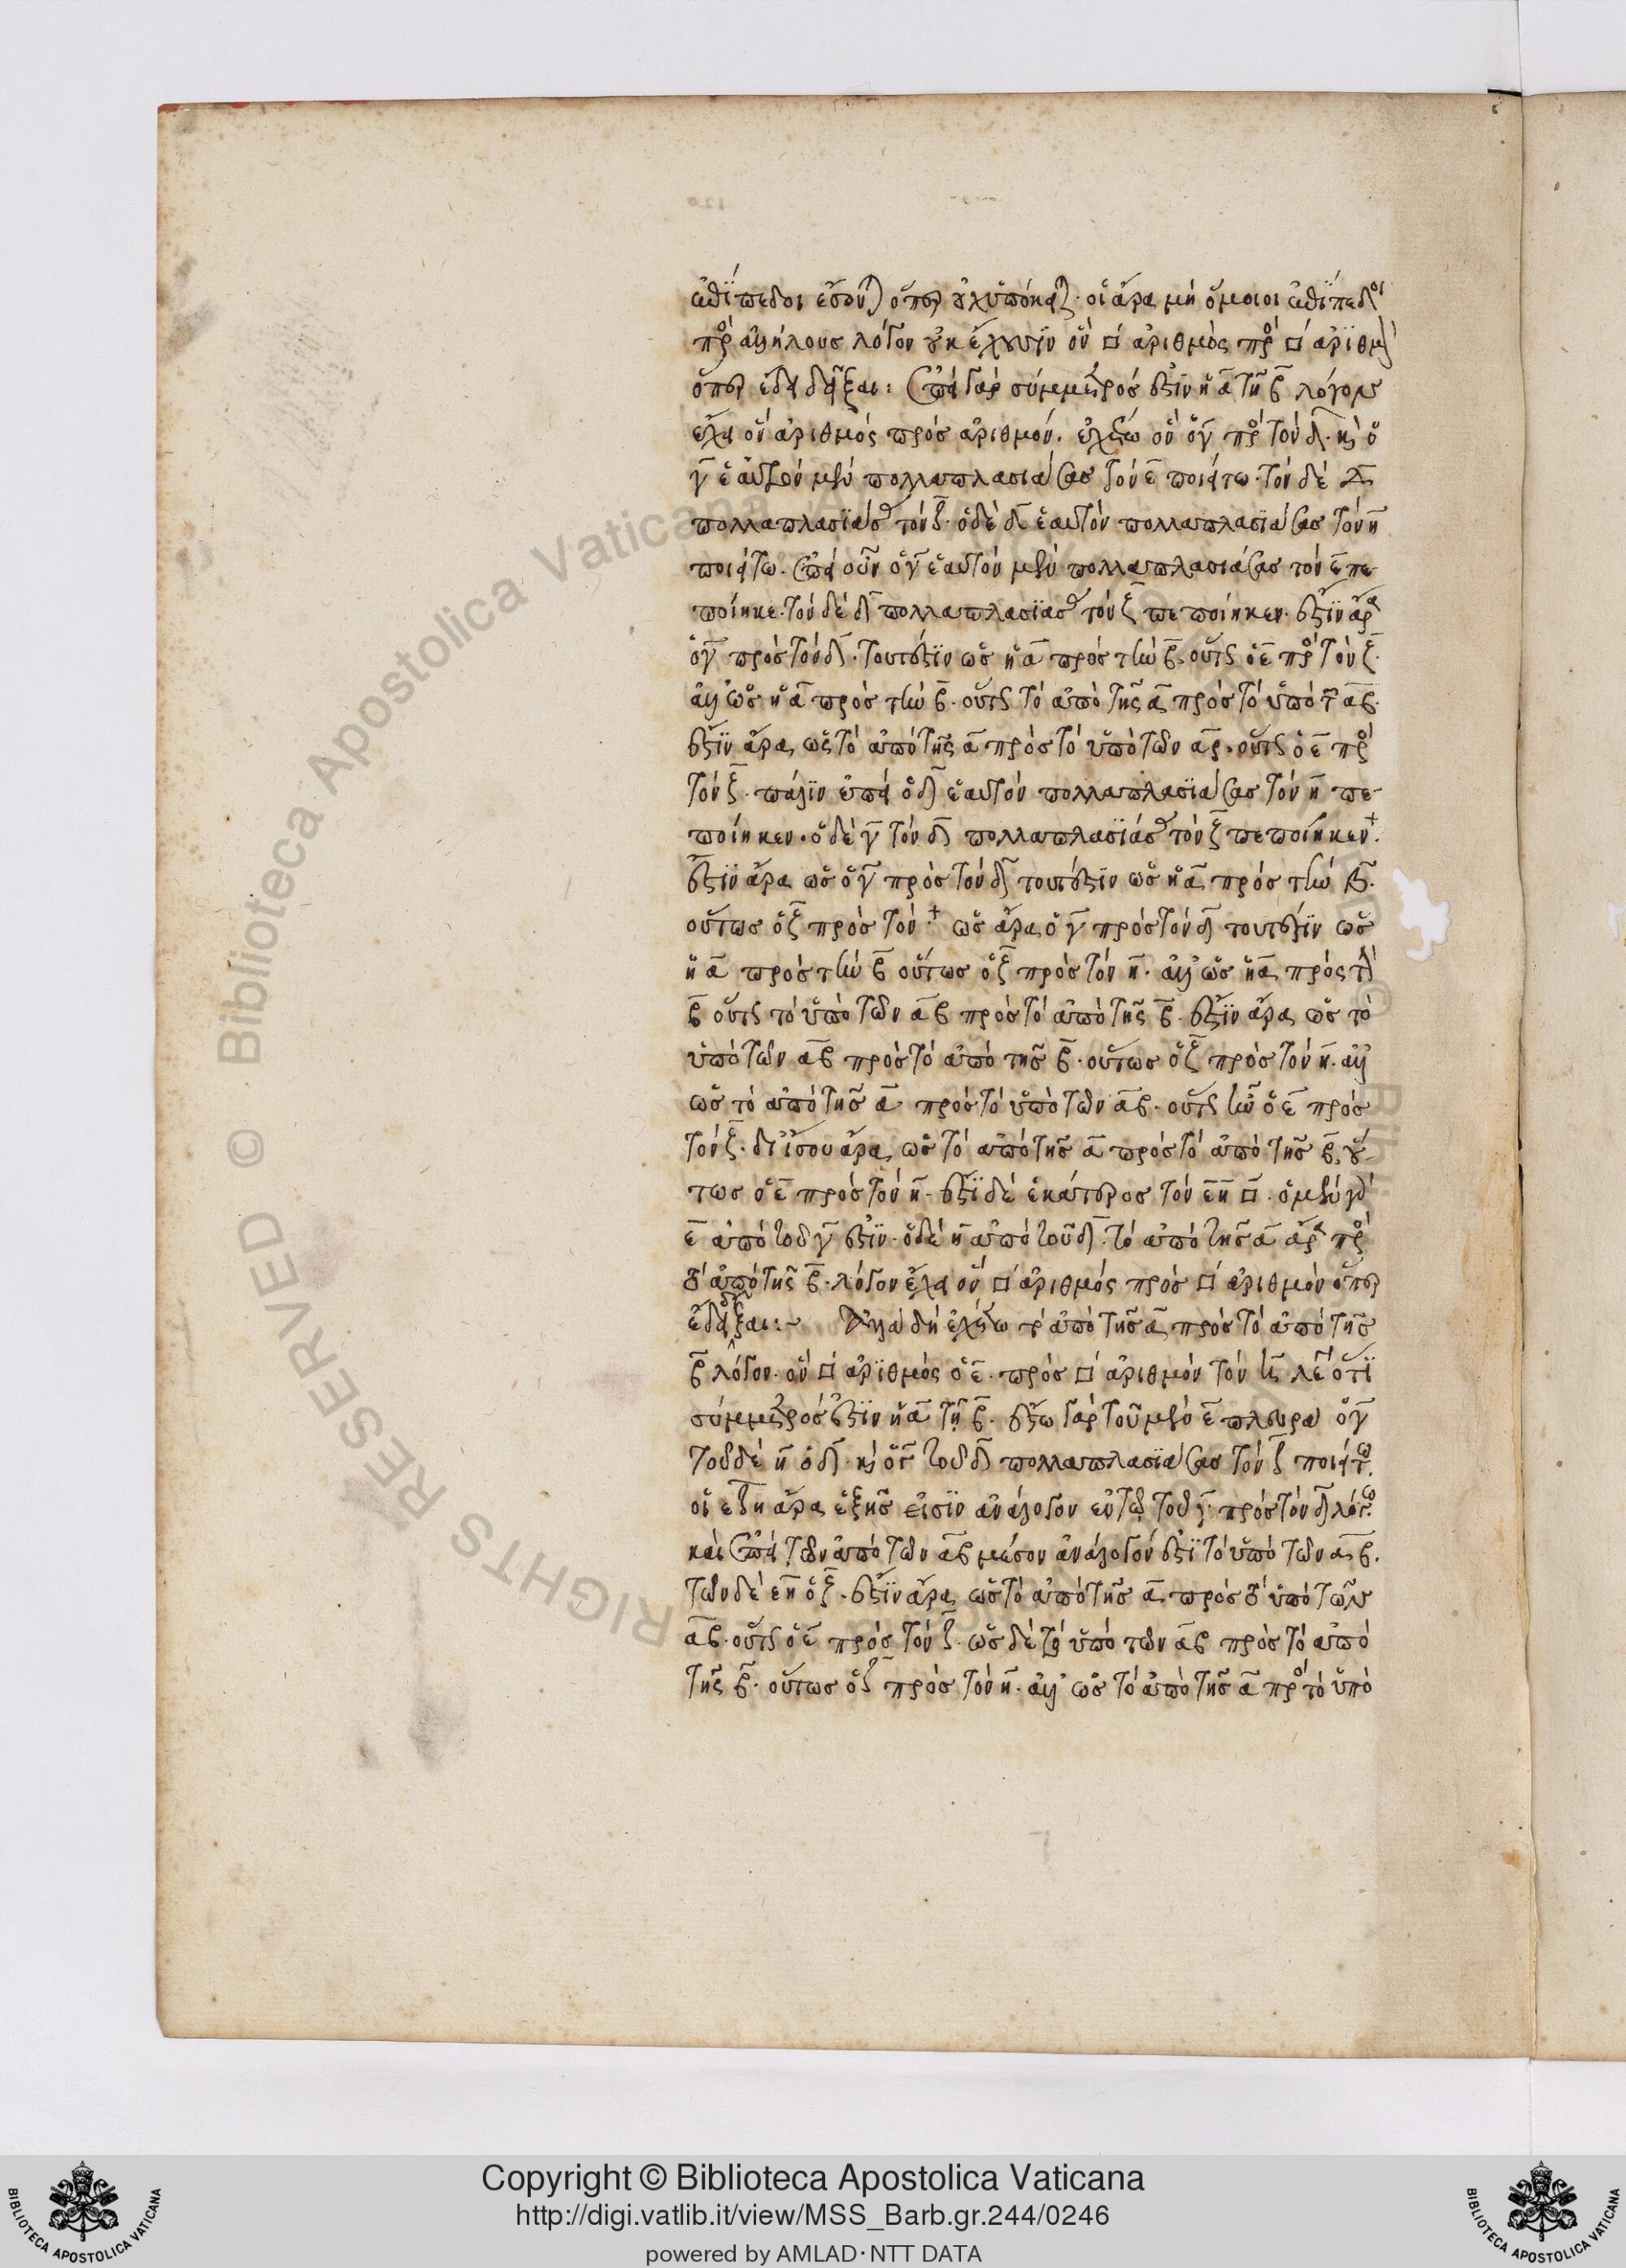 ἐπίπεδοι ἔσονται ὅπερ οὐχ ὑπόκειται· οἱ ἄρα μὴ ὅμοιοι ἐπίπεδοι
πρὸς ἀλλήλους λόγον οὐκ ἔχουσιν ὃν □ ἀριθμὸς πρὸς □ ἀριθμὸν
ὅπερ ἔδει δεῖξαι: ἐπεὶ γὰρ σύμμετρός ἐστιν ἡ α τῇ β λόγον
ἔχει ὃν ἀριθμὸς πρὸς ἀριθμόν. ἐχέτω ὃν ὁ γ πρὸς τὸν δ· καὶ ὁ
γ ἑαυτὸν μὲν πολλαπλασιάσας τὸν ε ποιείτω· τὸν δὲ δ
πολλαπλασιάσας τὸν ζ· ὁ δὲ δ ἑαυτὸν πολλαπλασιάσας τὸν η
ποιείτω. ἐπεὶ οὖν ὁ γ ἑαυτὸν μὲν πολλαπλασιάσας τὸν ε πε
ποίηκε· τὸν δὲ δ πολλαπλασιάσας τὸν ζ πεποίηκεν· ἔστιν ἄρα
ὁ γ πρὸς τὸν δ· τουτέστιν ὡς ἡ α πρὸς τὴν β· οὕτως ὁ ε πρὸς τὸν ζ·
ἀλλ' ὡς ἡ α πρὸς τὴν β· οὕτως τὸ ἀπὸ τῆς α πρὸς τὸ ὑπὸ τῶν α β·
ἔστιν ἄρα ὡς τὸ ἀπὸ τῆς α πρὸς τὸ ὑπὸ τῶν α β· οὕτως ὁ ε πρὸς
τὸν ζ· πάλιν ἐπεὶ ὁ δ ἑαυτὸν πολλαπλασιάσας τὸν η πε-
ποίηκεν· ὁ δὲ γ τὸν δ πολλαπλασιάσας τὸν ζ πεποίηκεν +
ἔστιν ἄρα ὡς ὁ γ πρὸς τὸν δ τουτέστιν ὡς ἡ α πρὸς τὴν β·
οὕτως ὁ ζ πρὸς τὸν + ὡς ἄρα ὁ γ πρὸς τὸν δ τουτέστιν ὡς
ἡ α πρὸς τὴν β οὕτως ὁ ζ πρὸς τὸν η· ἀλλ' ὡς ἡ α πρὸς τὴν
β οὕτως τὸ ὑπὸ τῶν α β πρὸς τὸ ἀπὸ τῆς β· ἔστιν ἄρα ὡς τὸ
ὑπὸ τῶν α β πρὸς τὸ ἀπὸ τῆς β· οὕτως ὁ ζ πρὸς τὸν η· ἀλλ'
ὡς τὸ ἀπὸ τῆς α πρὸς τὸ ὑπὸ τῶν α β· οὕτως ἦν ὁ ε πρὸς
τὸν ζ· δι' ἴσου ἄρα ὡς τὸ ἀπὸ τῆς α πρὸς τὸ ἀπὸ τῆς β οὕ-
τως ὁ ε πρὸς τὸν η· ἔστι δὲ ἑκάτερος τῶν ε η □· ὁ μὲν γὰρ
ε ἀπὸ τοῦ γ ἐστιν· ὁ δὲ η ἀπὸ τοῦ δ· τὸ ἀπὸ τῆς α ἄρα πρὸς
τὸ ἀπὸ τῆς β· λόγον ἔχει ὃν □ ἀριθμὸς πρὸς □ ἀριθμὸν ὅπερ
ἔδει δεῖξαι:~ Ἀλλὰ δὴ ἐχέτω τὸ ἀπὸ τῆς α πρὸς τὸ ἀπὸ τῆς
β λόγον· ὃν □ ἀριθμὸς ὁ ε· πρὸς □ ἀριθμὸν τὸν η λέγω ὅτι
σύμμετρός ἐστιν ἡ α τῇ β· ἔστω γὰρ τοῦ μὲν ε πλευρὰ ὁ γ
τοῦ δὲ η ὁ δ· καὶ ὁ γ τὸν δ πολλαπλασιάσας τὸν ζ ποιείτω·
οἱ ε ζ η ἄρα ἑξῆς εἰσὶν ἀνάλογον ἐν τῷ τοῦ γ πρὸς τὸν δ λόγῳ·
καὶ ἐπεὶ τῶν ἀπὸ τῶν α β μέσον ἀνάλογόν ἐστι τὸ ὑπὸ τῶν α β·
τῶν δὲ ε η ὁ ζ· ἔστιν ἄρα ὡς τὸ ἀπὸ τῆς α πρὸς τὸ ὑπὸ τῶν
α β· οὕτως ὁ ε πρὸς τὸν ζ· ὡς δὲ τὸ ὑπὸ τῶν α β πρὸς τὸ ἀπὸ
τῆς β· οὕτως ὁ ζ πρὸς τὸν η· ἀλλ' ὡς τὸ ἀπὸ τῆς α πρὸς τὸ ὑπὸ
RIGHTS RESERVED © Biblioteca Apostolica Vaticana
Copyright © Biblioteca Apostolica Vaticana
http://digi.vatlib.it/view/MSS_Barb.gr.244/0246
powered by AMLAD·NTT DATA
BIBLIOTECA APOSTOLICA VATICANA
BIBLIOTECA APOSTOLICA VATICANA